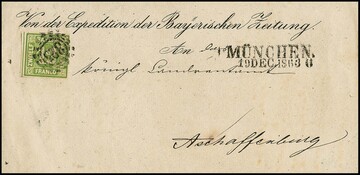 Von der Expedition der Bayerischen Zeitung.
An das
MÜNCHEN.
19 DEC. 1863
königl Landrentamt
FRANCO
Aschaffenburg